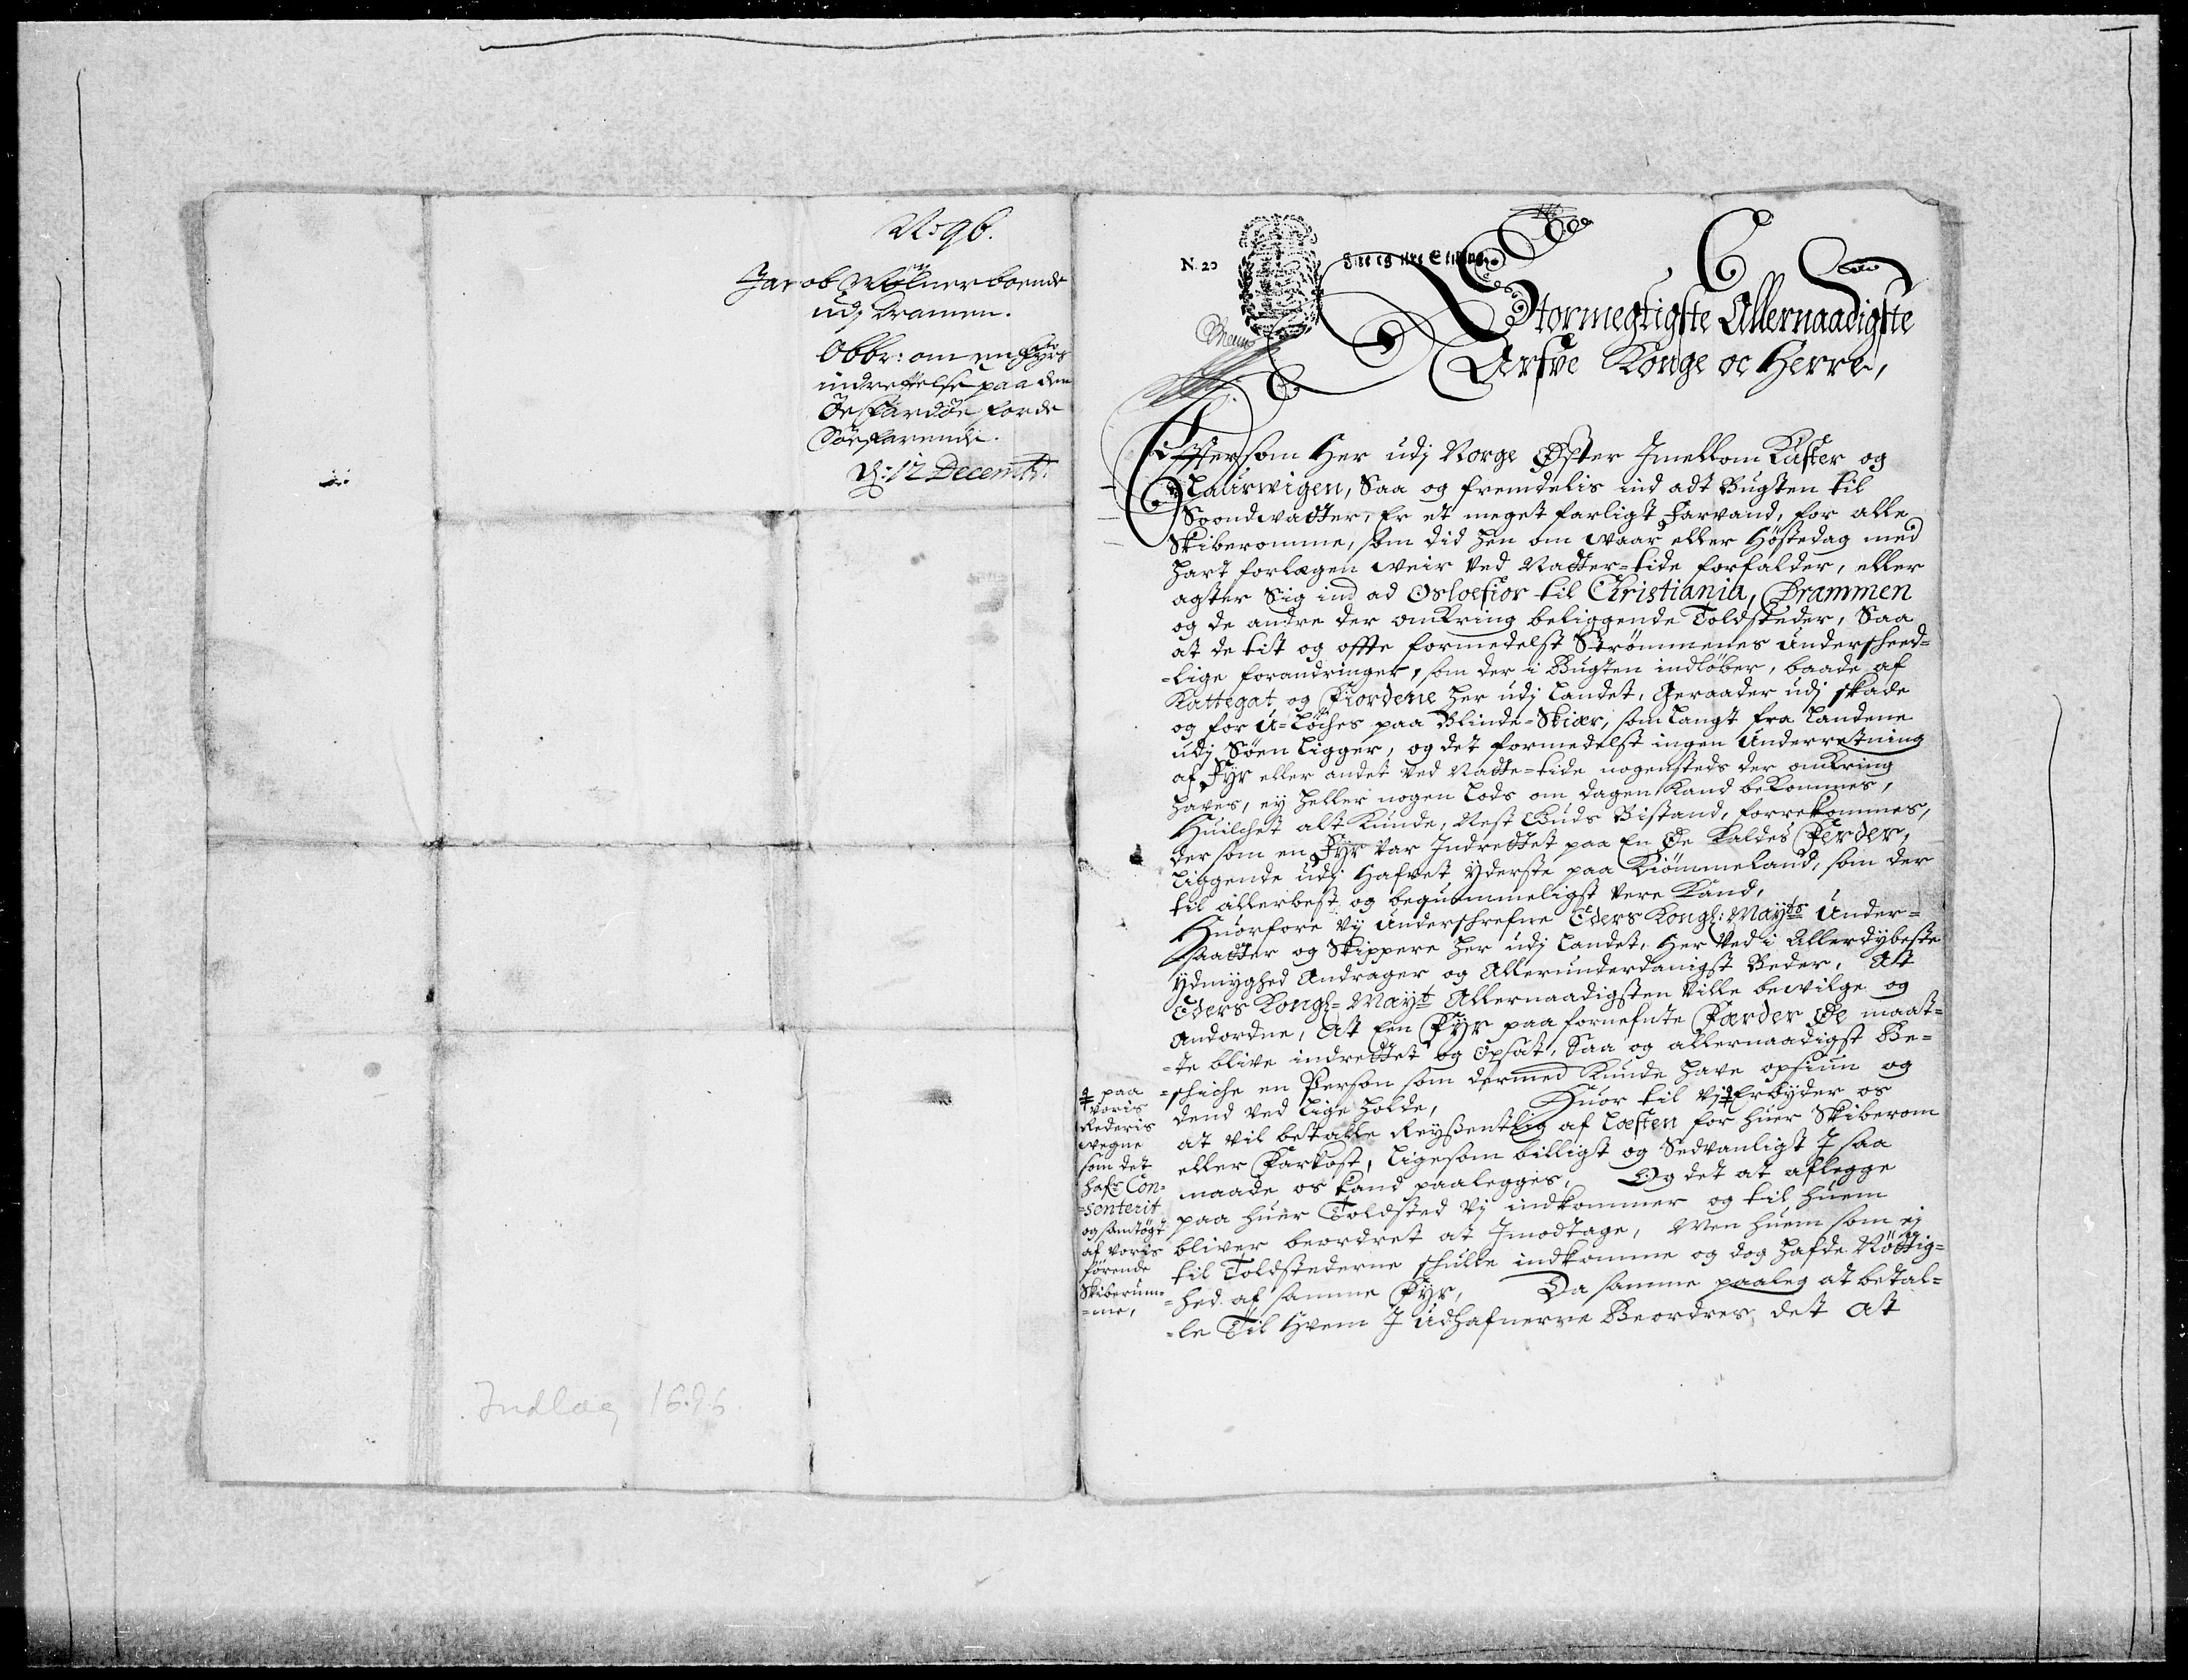 No 96.
Jacob Wølner boende
udj Dramen.
Obbr: om en Fyrs
indrettelse paa den
Øe Færdøe for de
Söefarende.
d: 12 Decembr:
Indlæg 1696
N. 20
Stormegtigste Allernaadigste
Arfve Konge oc Herre,
Efftersom Her udj Norge Øster Jmellom Kuster og
Laurwigen, Saa og fremdelis ind adt Bugten til
Soondwatter, Er et meget farligt Farvand, for alle
Skiberomme, som did hen om Waar eller Höstedag med
hart forlægen Weir ved Natter-tide forfalder, eller
agter Sig ind ad Osloefior til Christiania, Drammen
og de andre der omkring beliggende Toldsteder, Saa
at de tit og offte formedelst Strömmenes Underscheed-
-lige forandringer, som der i Bugten indløber, baade af
Kattegat og Fiordene her udj Landet, Geraader udj skade
og for U-Löches paa Blinde-Skiær, som langt fra Landene
udj Söen Ligger, og det formedelst ingen Underretning
af Fyr eller andet ved Natte-tide nogensteds der omkring
haves, ey heller nogen Lods om dagen kand bekommes,
Huilchet alt kunde, Nest Guds Bistand, forrekommes,
der som en Fyr var Jndrettet paa En Øe kaldes Ferder,
Liggende udj Hafvet Yderste paa Kiömmeland, som der
til allerbest og bequemmeligst vere kand,
Huorfore Vj Underschrefne Eders Kongl: Mayts Under-
saatter og Skippere her udj Landet, Her Ved i Allerdybeste
Ydmyghed Andrager og Allerunderdanigst Beder, At
Eders Kongl- Mayt Allernaadigsten Ville bewilge og
Andordne, At Een Fyr paa fornefnte Færder Øe maat-
-te blive indrettet og Opsat, Saa og allernaadigst Be-
-schiche en Person som dermed kunde have opsiun og
dend ved Lige holde, Huor til Vj # Erbyder os
at vil betalle Reyßentlig af Læsten for huer Skiberom
eller Farkost, Ligesom billigt og Sedvanligt J saa
maade os kand paalegges, Og det at aflegge
paa huer Toldsted Vj indkommer og til huem
bliver beordret at Jmodtage, Men huem som ej
til Toldstederne schulle indkomme og dog hafde Nöttig-
-hed af samme Fyr, Da samme paaleg at betal-
-le Til Hvem J Udhafnerne Beordres det At
# paa
Voris
Rederis
vegne
som det
hafr Con-
-senterit
og samtögt
af Voris
förende
Skiberum-
-me,